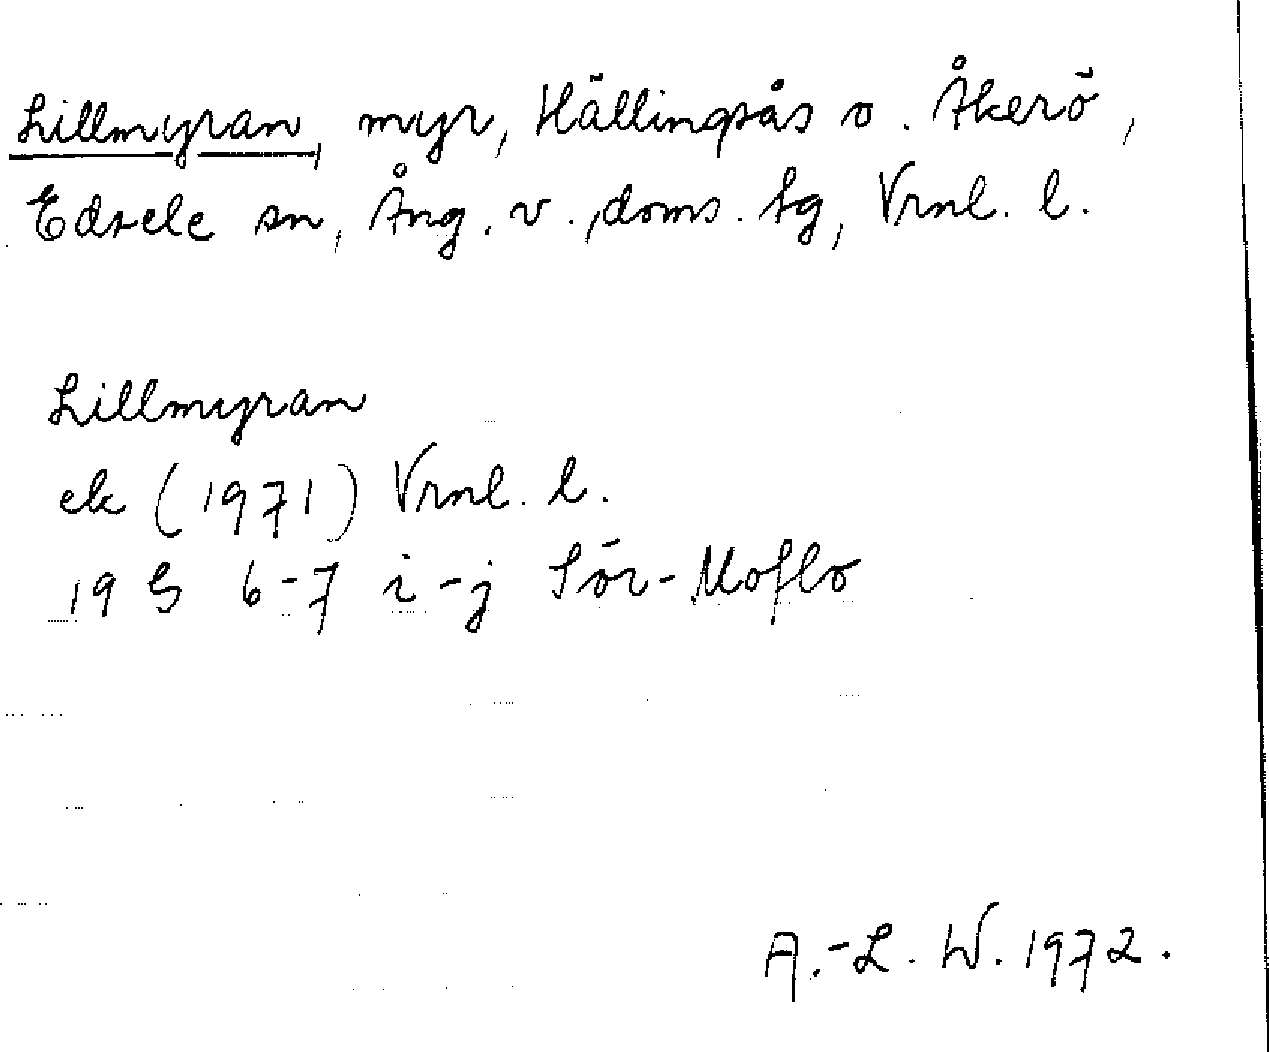 Lillmyran, myr, Hällingsås o. Åkerö,
Edsele sn, Ång. v., doms. tg, Vrnl. l.
Lillmyran
ek (1971) Vrnl. l.
19 G 6-7 i-j Sör-Moflo
A.-L. W. 1972.